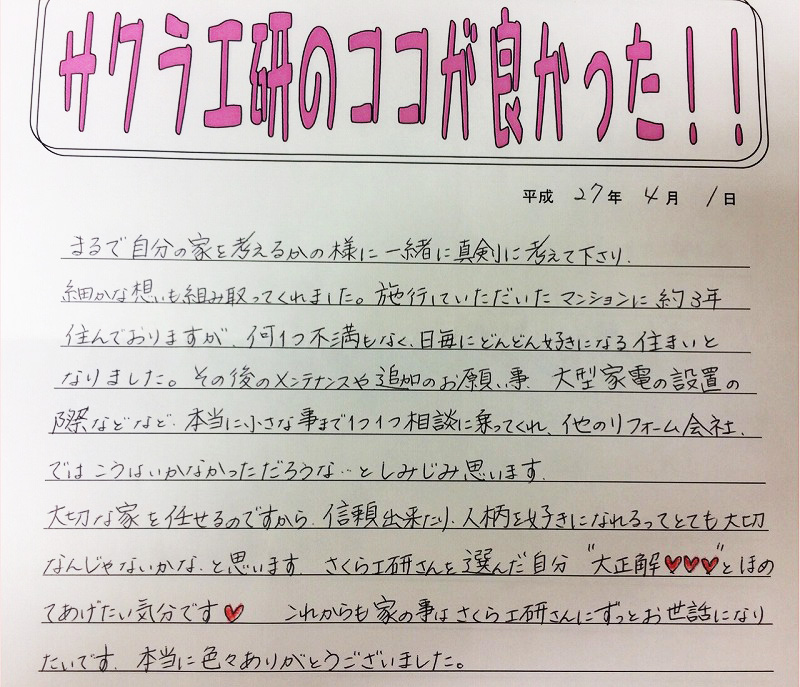 サクラ工研のココが良かった！！
平成 27年 4月 1日
まるで自分の家を考えるかの様に一緒に真剣に考えて下さり、
細かな想いも組み取ってくれました。施行していただいたマンションに約3年
住んでおりますが、何1つ不満もなく、日毎にどんどん好きになる住まいと
なりました。その後のメンテナンスや追加のお願い事、大型家電の設置の
際などなど、本当に小さな事まで1つ1つ相談に乗ってくれ、他のリフォーム会社、
ではこうはいかなかっただろうな…としみじみ思います。
大切な家を任せるのですから、信頼出来たり、人柄を好きになれるってとても大切
なんじゃないかな、と思います。さくら工研さんを選んだ自分 "大正解♥♥♥"とほめ
てあげたい気分です♥ これからも家の事はさくら工研さんにずっとお世話になり
たいです。本当に色々ありがとうございました。